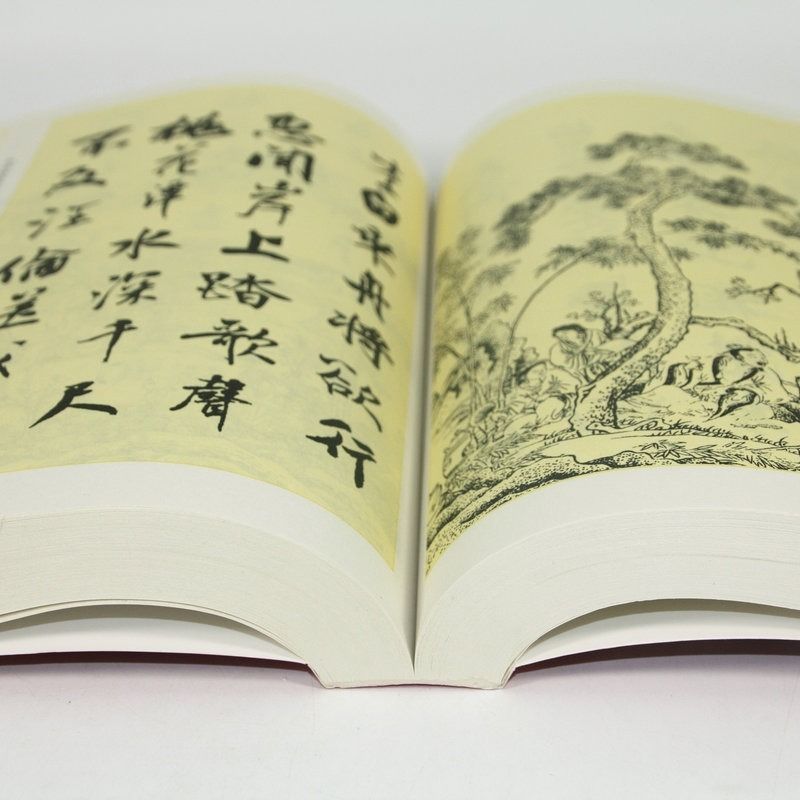 李白乘舟將欲行
忽聞岸上踏歌聲
桃花潭水深千尺
不及汪倫送